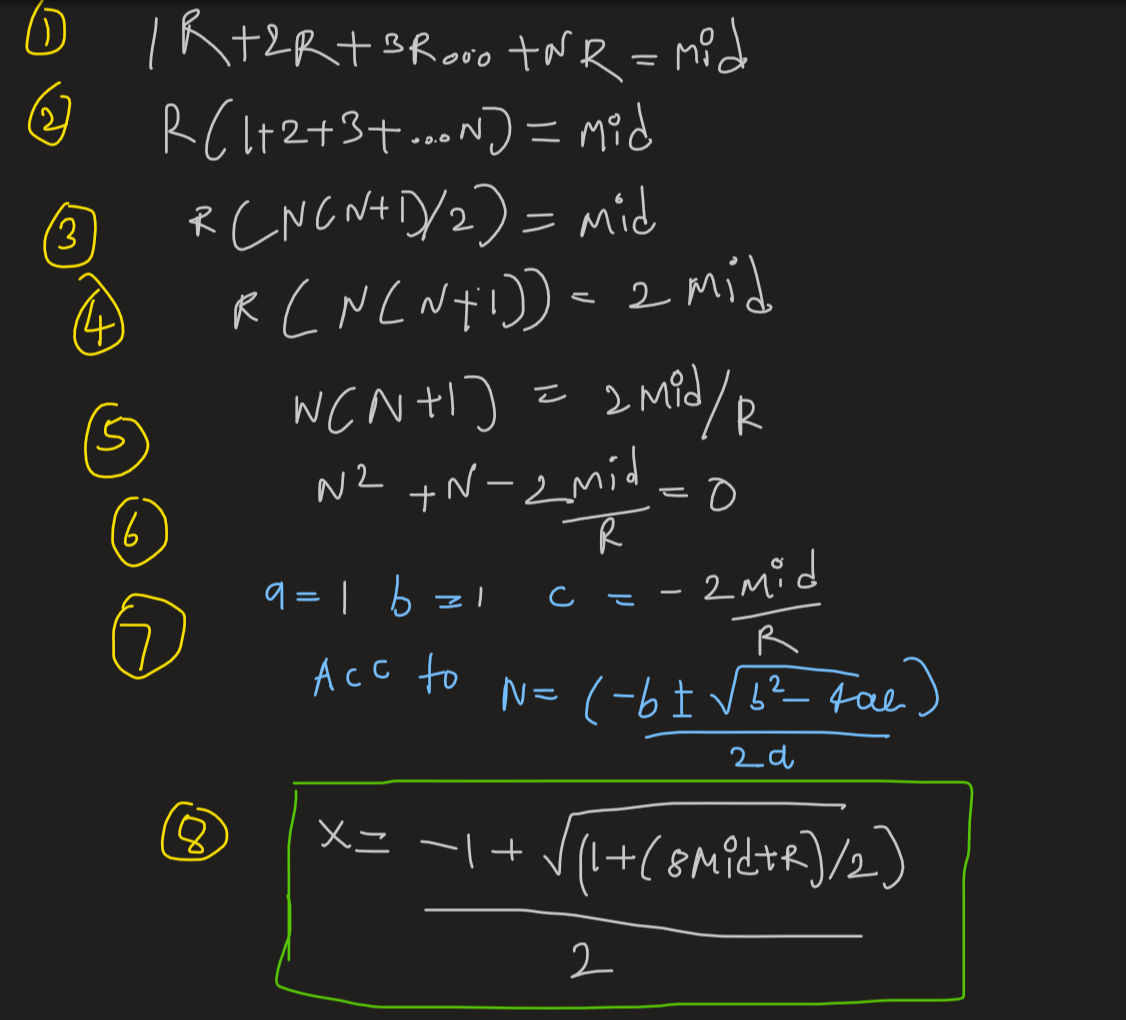 ① 1R+2R+3R...+NR = mid
② R(1+2+3+....N) = mid
③ R(N(N+1)/2) = mid
④ R(N(N+1)) = 2 mid
⑤ N(N+1) = 2 mid/R
⑥ N² + N - 2mid/R = 0
⑦ a=1 b=1 c = - 2mid/R
Acc to N= (-b ± √b²-4ac)/2a
⑧ X= -1 + √(1+(8mid+R)/2)/2